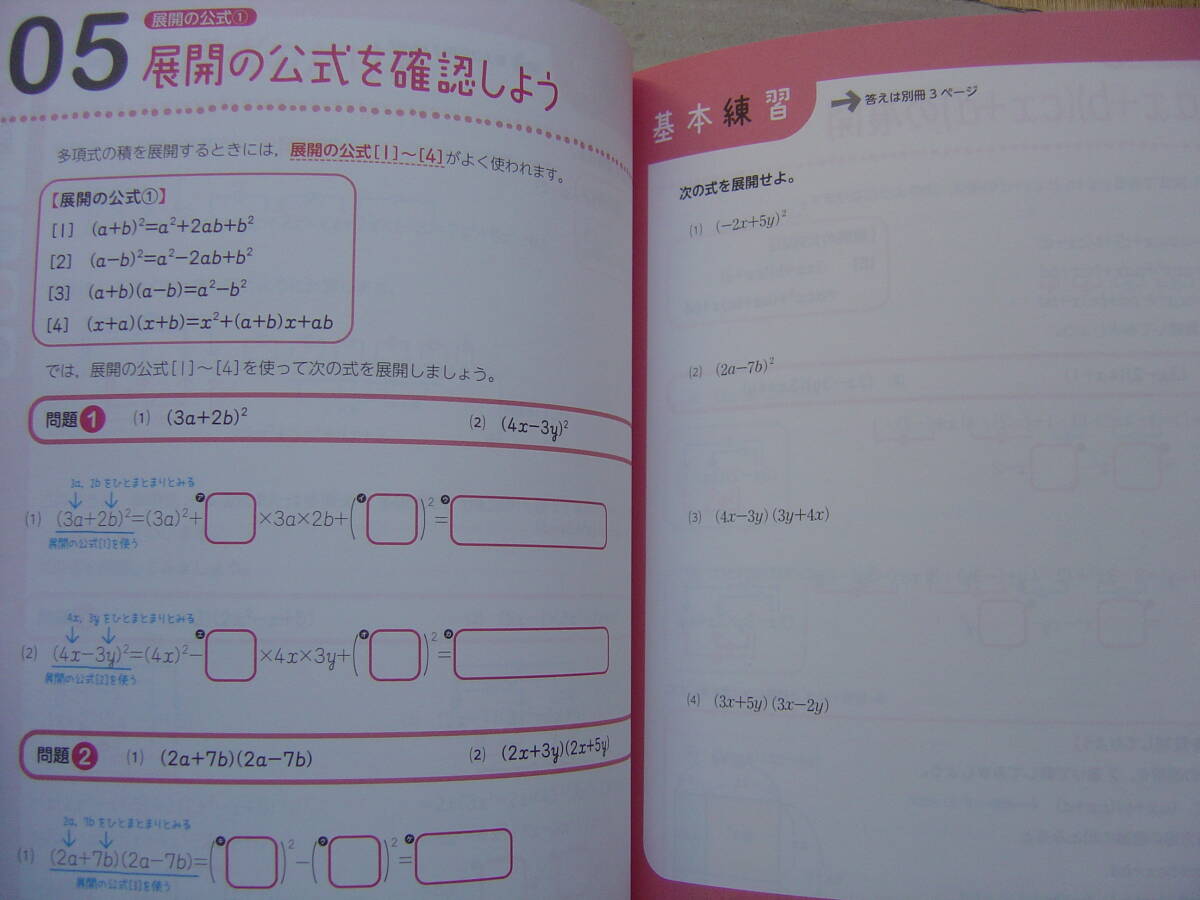 05
展開の公式①
展開の公式を確認しよう
多項式の積を展開するときには，展開の公式[1]～[4]がよく使われます。
【展開の公式①】
[1] (a+b)²=a²+2ab+b²
[2] (a−b)²=a²−2ab+b²
[3] (a+b)(a−b)=a²−b²
[4] (x+a)(x+b)=x²+(a+b)x+ab
では，展開の公式[1]～[4]を使って次の式を展開しましょう。
問題1 (1) (3a+2b)² (2) (4x−3y)²
3a，2bをひとまとまりとみる
(1) (3a+2b)²=(3a)²+ア□×3a×2b+(イ□)²=ウ□
展開の公式[1]を使う
4x，3yをひとまとまりとみる
(2) (4x−3y)²=(4x)²−エ□×4x×3y+(オ□)²=カ□
展開の公式[2]を使う
問題2 (1) (2a+7b)(2a−7b) (2) (2x+3y)(2x+5y)
2a，7bをひとまとまりとみる
(1) (2a+7b)(2a−7b)=(キ□)²−(ク□)²=ケ□
展開の公式[3]を使う
基本練習 答えは別冊3ページ
次の式を展開せよ。
(1) (−2x+5y)²
(2) (2a−7b)²
(3) (4x−3y)(3y+4x)
(4) (3x+5y)(3x−2y)